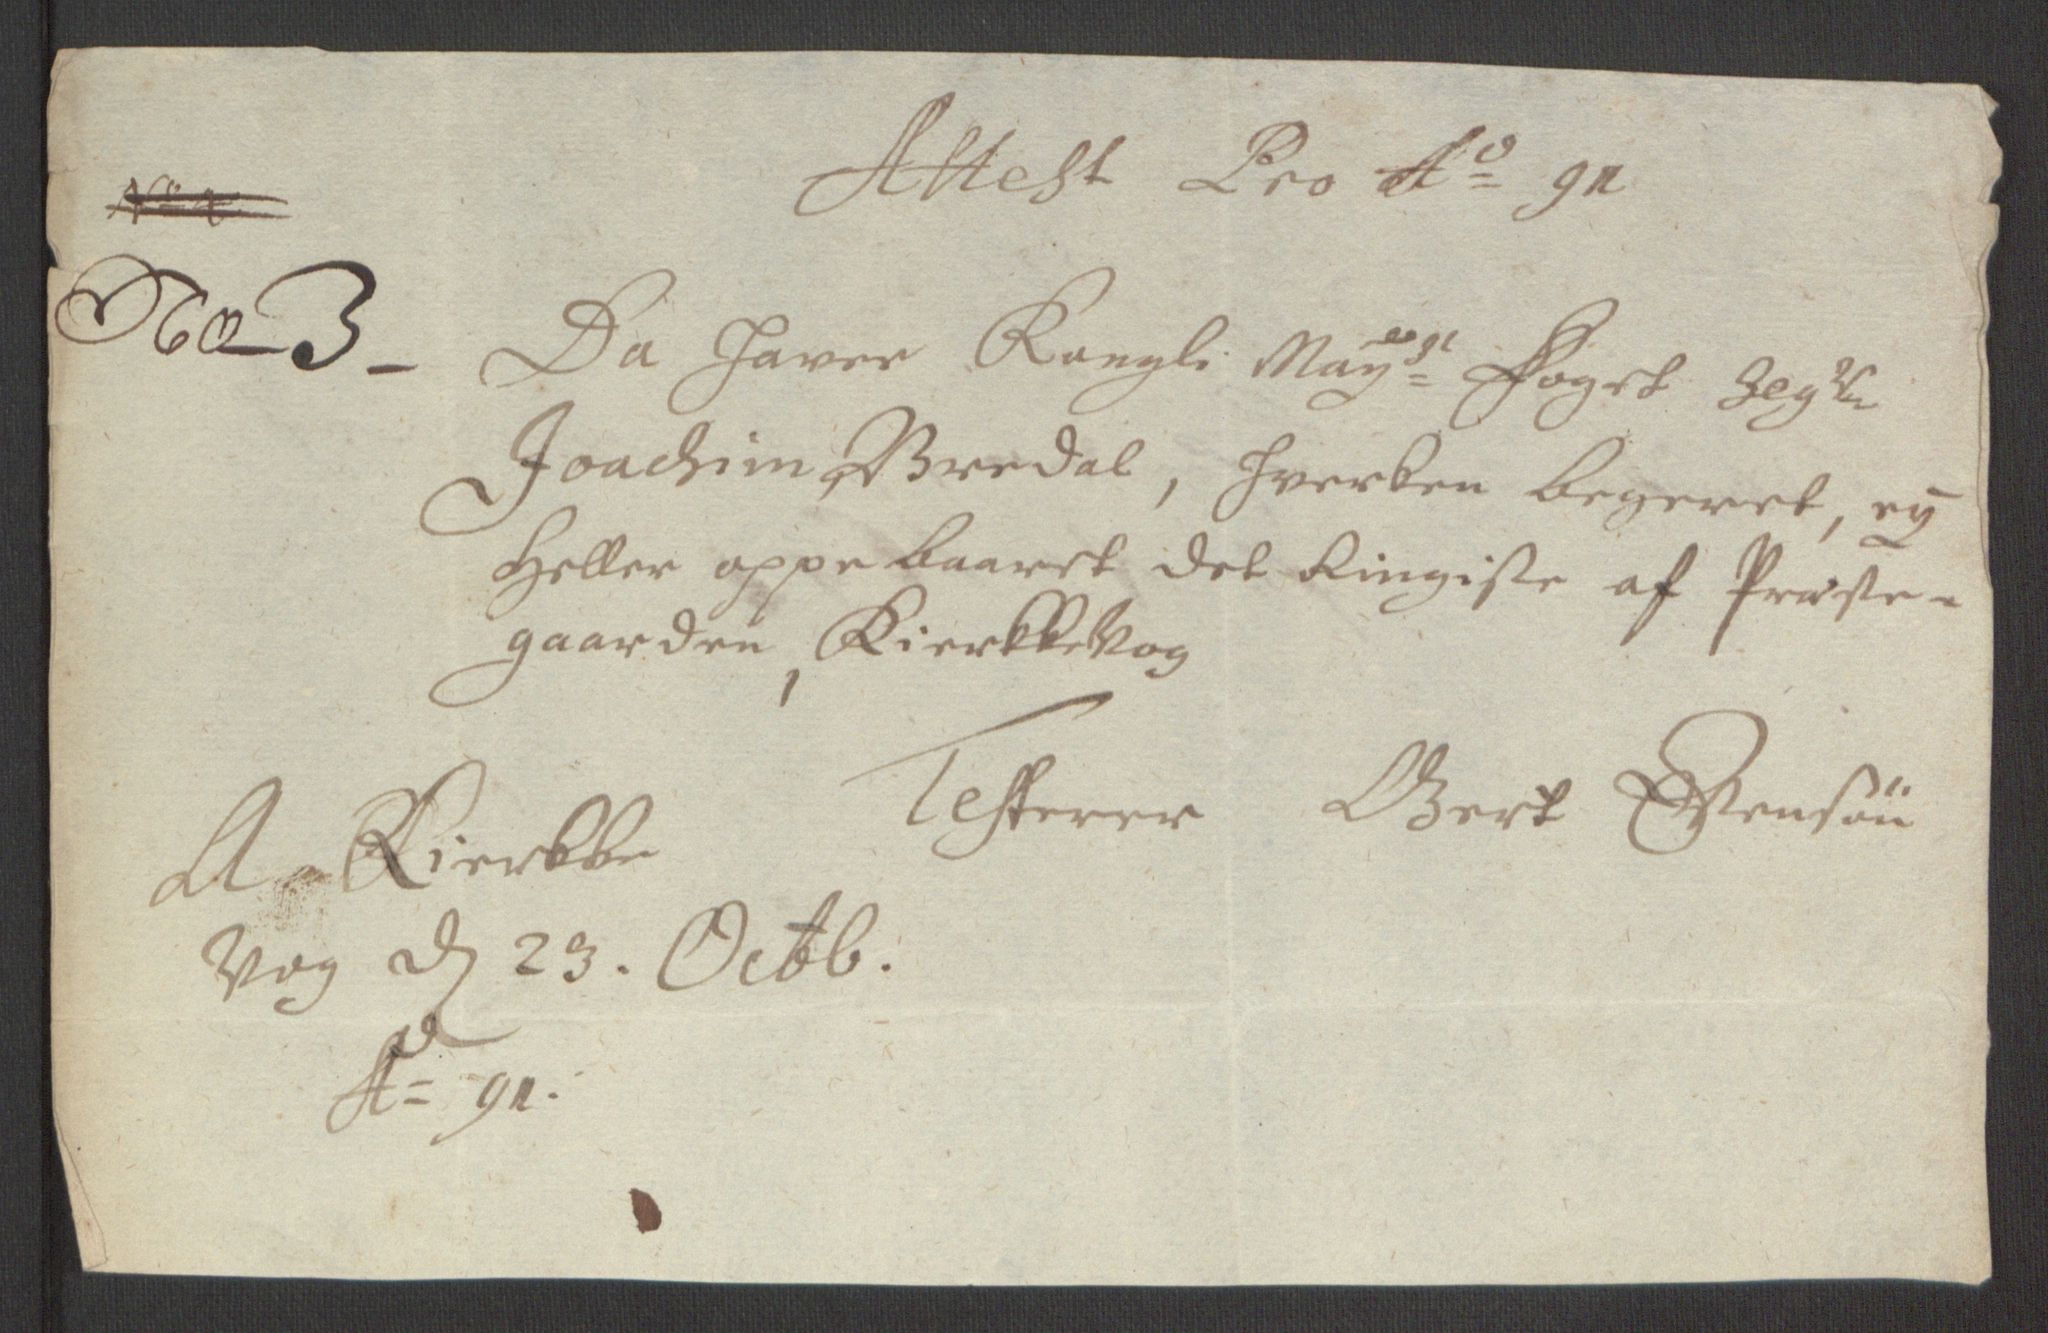 Attest Pro Ao 91
No 3
Da haver Kongl: Mayts Foget
Joachim Bredal, hverken begeret, ey
Heller oppebaaret det Ringiste af Præste-
gaarden, Kierkkevog
Testerer Gert Stensøn
A Kierkke
vog d 23. Octb.
Ao 91.